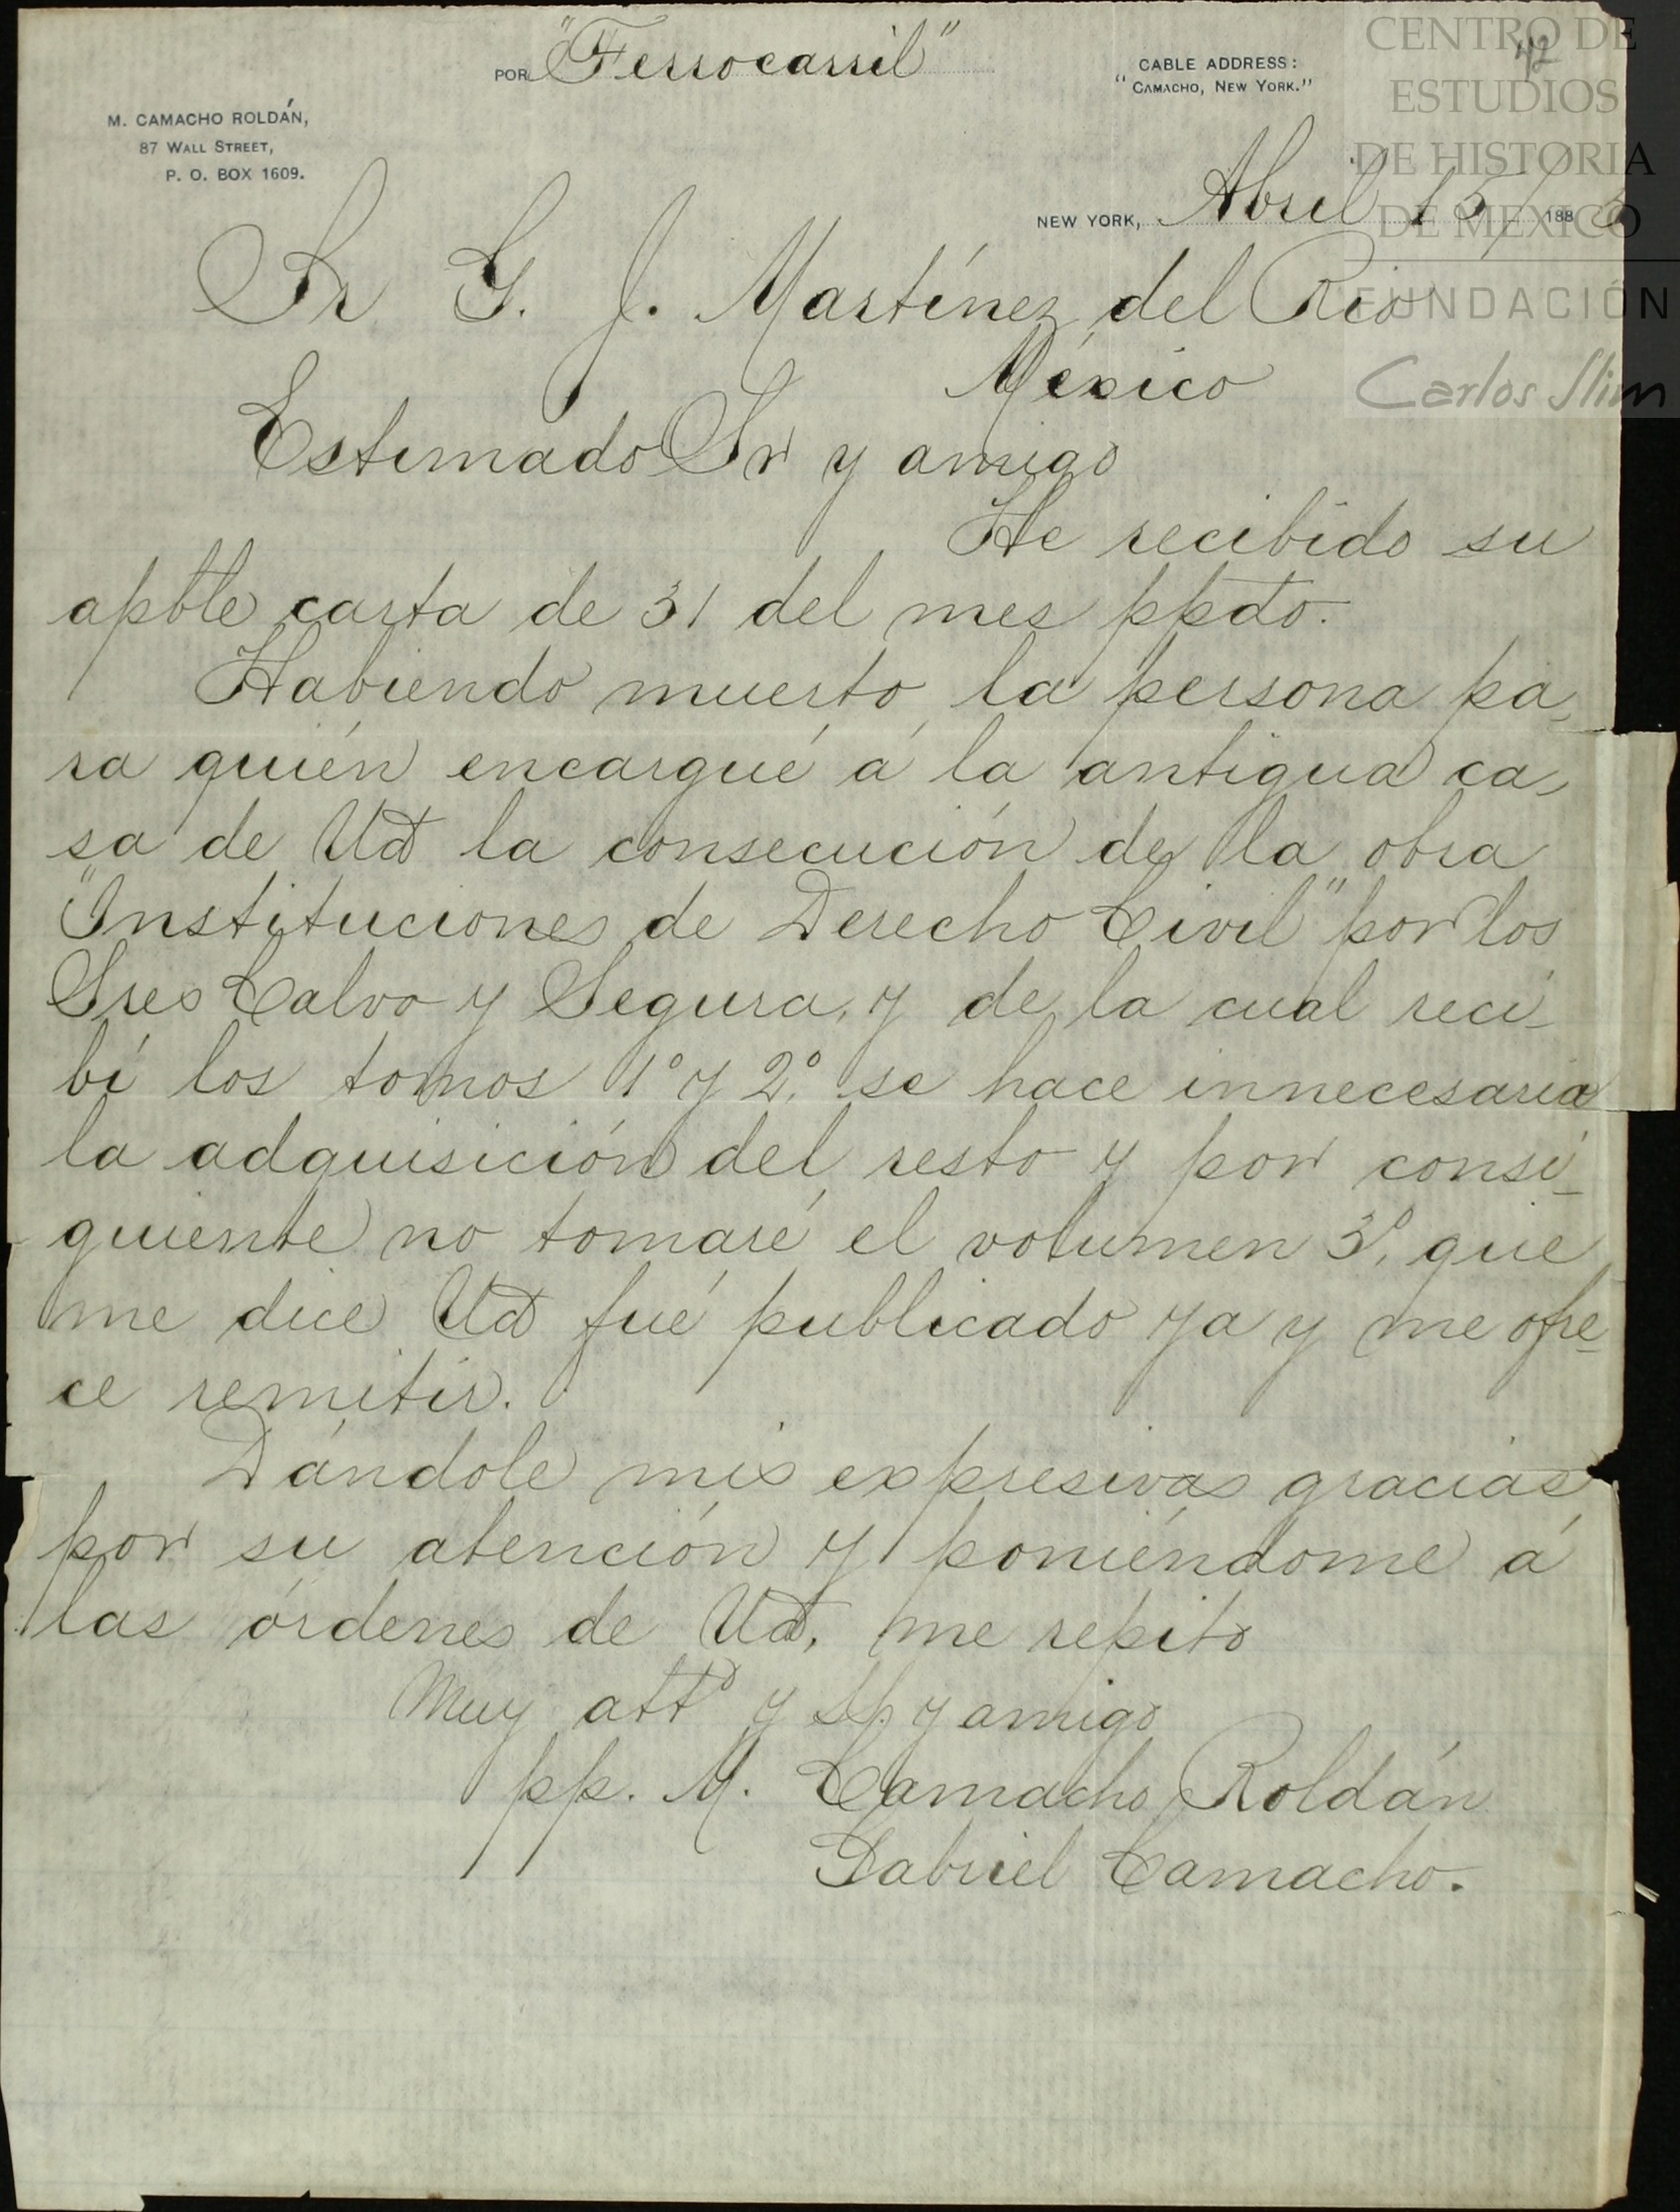 POR "Ferrocarril"
CABLE ADDRESS:
"CAMACHO, NEW YORK."
42
CENTRO DE
ESTUDIOS
DE HISTORIA
DE MEXICO
FUNDACIÓN
Carlos Slim
M. CAMACHO ROLDÁN,
87 WALL STREET,
P. O. BOX 1609.
NEW YORK, Abril 15/ 188
Sr G. J. Martínez del Rio
México
Estimado Sr y amigo
He recibido su
apble carta de 31 del mes ppdo.
Habiendo muerto la persona pa-
ra quién encargué á la antigua ca-
sa de Ud la consecución de la obra
"Instituciones de Derecho Civil" por los
Sres Calvo y Segura, y de la cual reci-
bí los tomos 1º y 2º, se hace innecesaria
la adquisición del resto y por consi-
guiente no tomaré el volumen 3º, que
me dice Ud fué publicado ya y me ofre-
ce remitir.
Dándole mis expresivas gracias
por su atención y poniéndome á
las órdenes de Ud, me repito
Muy attº y SS. y amigo
pp. M. Camacho Roldán
Gabriel Camacho.